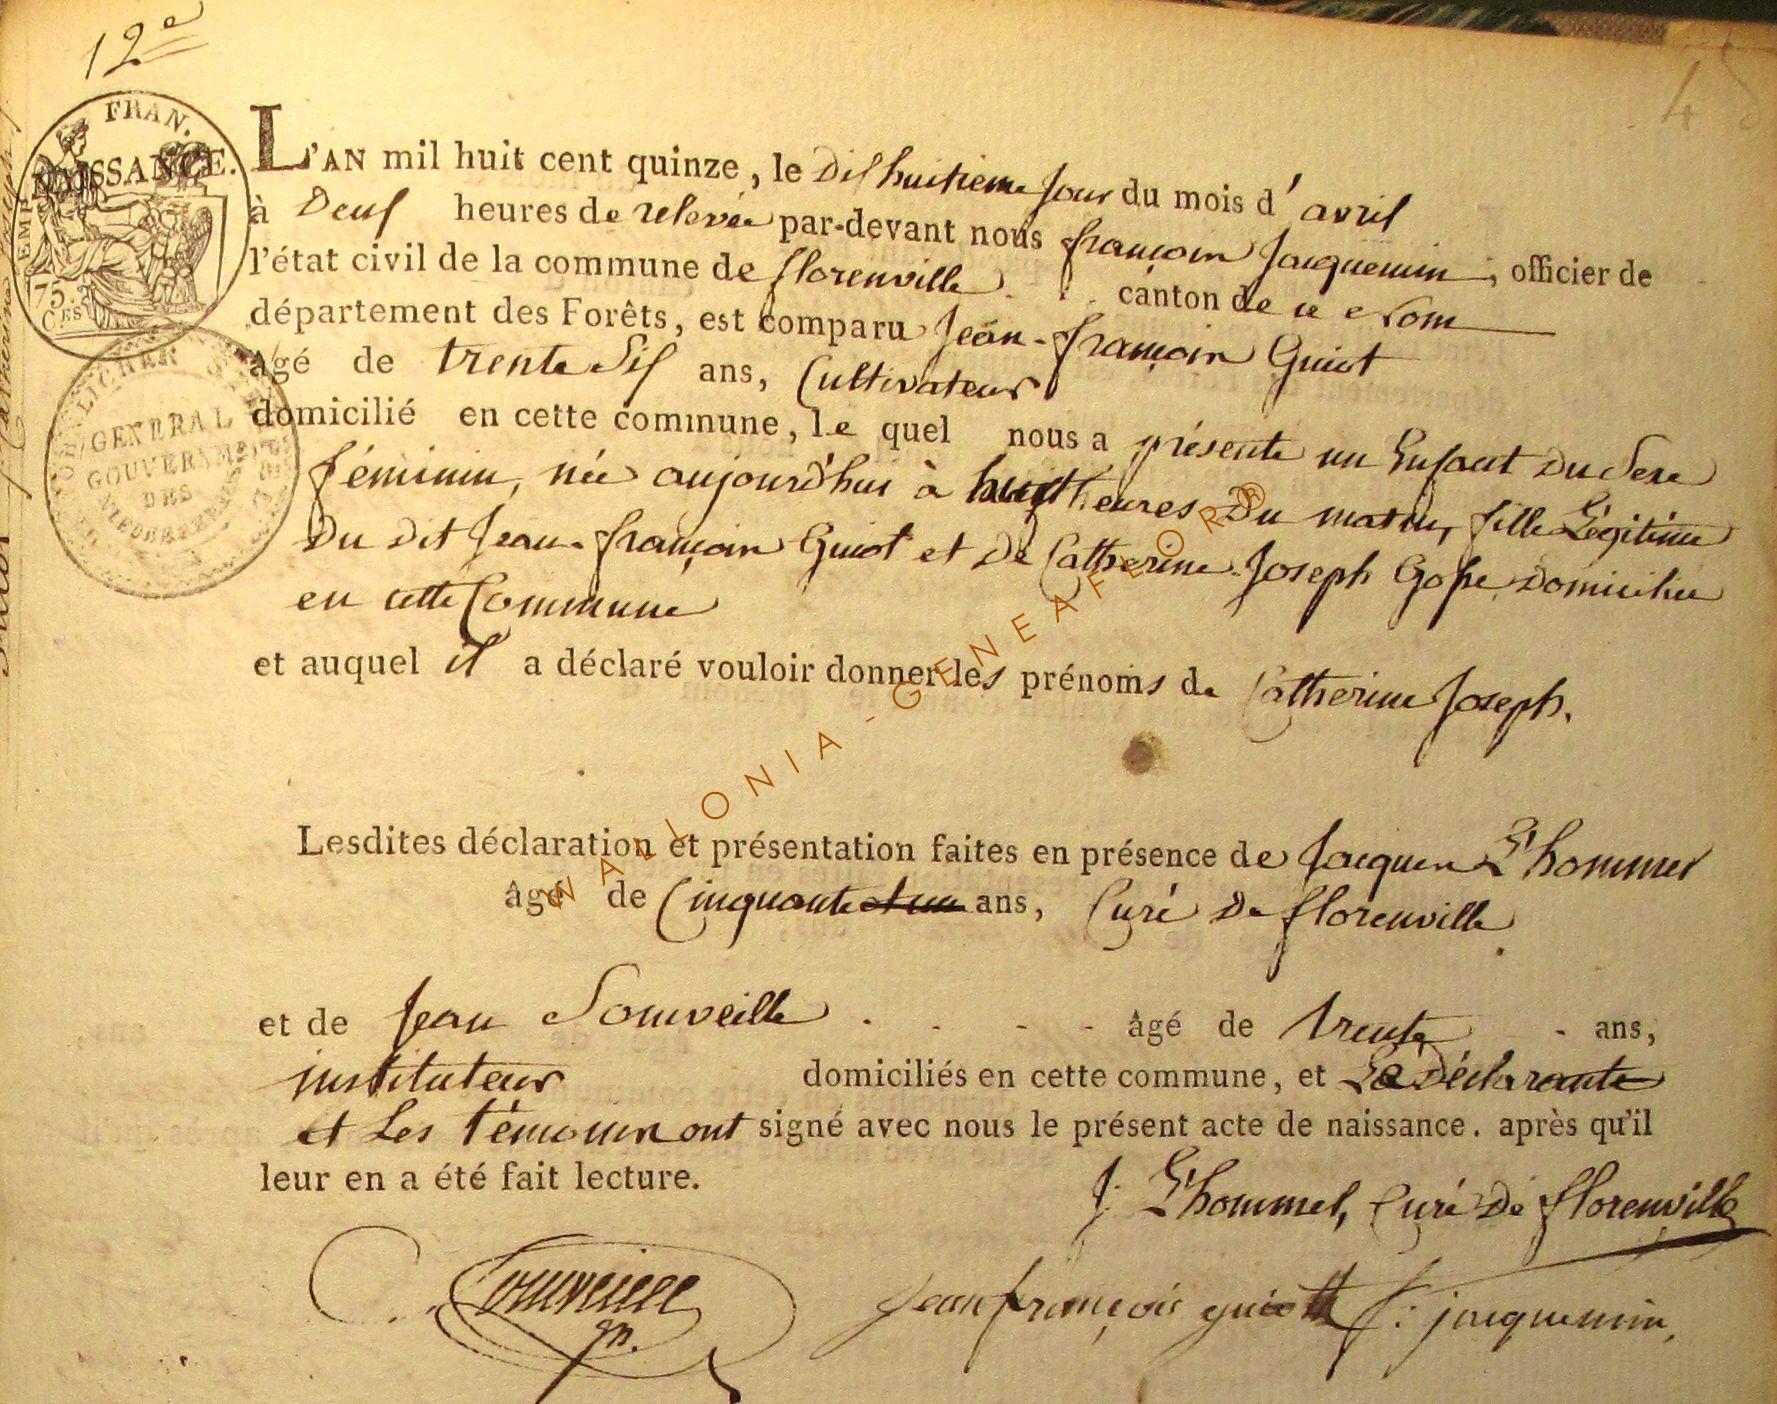 12e
48
FRAN.
NAISSANCE.
EMP
75.
CES
GENERAL
GOUVERNEM
DES
NIEDERRHEINS
L'AN mil huit cent quinze, le dishuitieme jour du mois d'avril
à deus heures de relevée par-devant nous françois Jacquemin, officier de
l'état civil de la commune de florenville canton de ce nom
département des Forêts, est comparu Jean-françois Guiot
âgé de trente Sis ans, Cultivateur
domicilié en cette commune, le quel nous a présenté un Enfant du Sexe
féminin, née aujourd'hui à huit heures du matin, fille Légitime
du dit Jean-françois Guiot et de Catherine-Joseph Gofse domiciliée
en cette Commune
et auquel il a déclaré vouloir donner les prénoms de Catherine Joseph.
Lesdites déclaration et présentation faites en présence de Jacques L'hommel
âgé de Cinquante et un ans, Curé de florenville
et de Jean Souveille - - - - âgé de trente - ans,
instituteur domiciliés en cette commune, et Le Déclarante
et Les témoins ont signé avec nous le présent acte de naissance. après qu'il
leur en a été fait lecture.
J: L'hommel, Curé de florenville
Souveille
jean françois guiott f: jacquemin,
WALLONIA-GENEAFEOR®